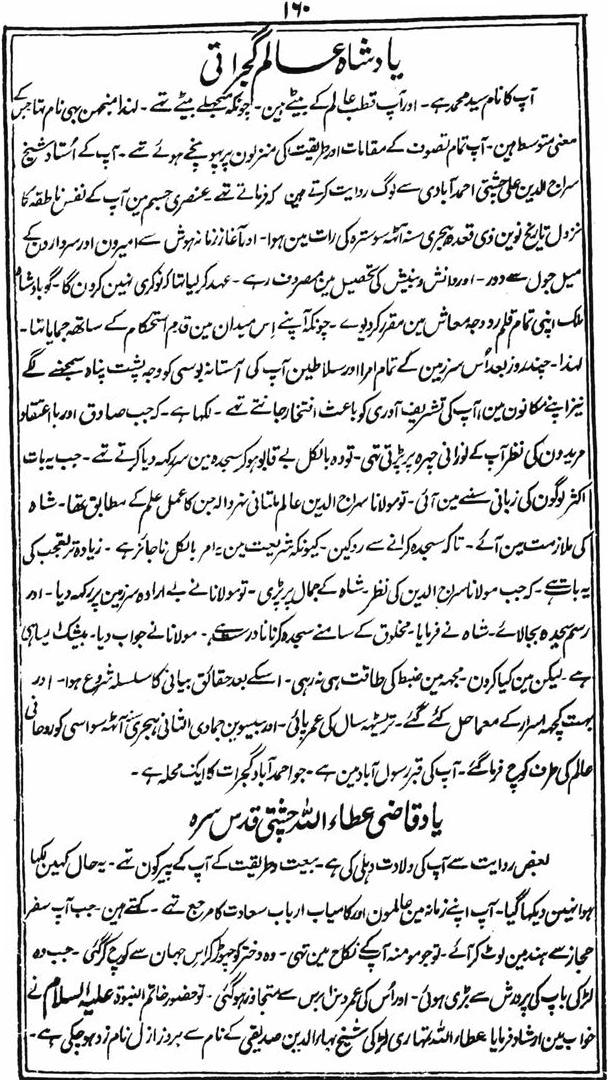 ۱۶۰
یاد شاہ عالم گجراتی
آپ کا نام سید محمد ہے - اور آپ قطب عالم کے بیٹے ہین - چونکہ منجھلے بیٹے تھے - لہذا منجھن بھی نام تھا جس کے
معنی متوسط ہین - آپ تمام تصوف کے مقامات اور طریقت کی منزلون پر پہونچے ہوئے تھے - آپ کے اُستاد شیخ
سراج الدین علی چشتی احمد آبادی سے لوگ روایت کرتے ہین کہ فرماتے تھے عنصری جسم مین آپ کے نفس ناطقہ کا
نزول تاریخ نوین ذی قعدہ ہجری سنہ آٹھ سو سترہ کی رات مین ہوا - اور آغاز زمانہ ہوش سے امیرون اور سردارون کے
میل جول سے دور - اور دانش و بینش کی تحصیل مین مصروف رہے - عہد کر لیا تھا کہ نوکری نہین کرون گا - گو بادشاہ
ملک اپنی تمام قلمرو وجہ معاش مین مقرر کر دیوے - چونکہ آپنے اِس میدان مین قدم استحکام کے ساتھ جمایا تھا -
لہذا - چند روز بعد اُس سرزمین کے تمام امرا اور سلاطین آپ کی آستانہ بوسی کو وجہ پشت پناہ سمجھنے لگے
نیز اپنے مکانون مین، آپ کی تشریف آوری کو باعث افتخار جانتے تھے - لکھا ہے - کہ جب صادق اور با اعتقاد
مریدون کی نظر آپ کے نورانی چہرہ پر پڑتی تھی - تو وہ بالکل بے قابو ہو کر سجدہ مین سر رکھدیا کرتے تھے - جب یہ بات
اکثر لوگون کی زبانی سننے مین آئی - تو مولانا سراج الدین عالم ملتانی نہروالہ جن کا عمل علم کے مطابق تھا - شاہ
کی ملازمت مین آئے - تاکہ سجدہ کرانے سے روکین - کیونکہ شریعت مین یہ امر بالکل ناجائز ہے - زیادہ تر تعجب کی
یہ بات ہے - کہ جب مولانا سراج الدین کی نظر شاہ کے جمال پر پڑی - تو مولانا نے بے ارادہ سر زمین پر رکھدیا - اور
رسم سجدہ بجا لائے - شاہ نے فرمایا - مخلوق کے سامنے سجدہ کرنا نادرست ہے - مولانا نے جواب دیا - بیشک ایسا ہی
ہے - لیکن مین کیا کرون - مجھ مین ضبط کی طاقت ہی نہ رہی - اسکے بعد حقائق بیانی کا سلسلہ شروع ہوا - اور
بہت کچھ اسرار کے معما حل کئے گئے - تریسٹھ سال کی عمر پائی - اور بیسوین جمادی الثانی ہجری سنہ آٹھ سو اسی کو روحانی
عالم کی طرف کوچ فرما گئے - آپ کی قبر رسول آباد مین ہے - جو احمد آباد گجرات کا ایک محلہ ہے -
یاد قاضی عطاء اللہ چشتی قدس سرہ
بعض روایت سے آپ کی ولادت دہلی کی ہے - بیعت و طریقت کے آپ کے پیر کون تھے - یہ حال کہین لکھا
ہوا نہین دیکھا گیا - آپ اپنے زمانہ مین عالمون اور کامیاب ارباب سعادت کا مرجع تھے - کہتے ہین - جب آپ سفر
حجاز سے ہند مین لوٹ کر آئے - تو جو مومنہ آپ کے نکاح مین تھی - وہ دختر کو چھوڑ کر اِس جہان سے کوچ کر گئی - جب وہ
لڑکی باپ کی پرورش سے بڑی ہوئی - اور اُس کی عمر دس برس سے متجاوز ہو گئی - تو حضور خاتم النبوۃ علیہ السلام نے
خواب مین ارشاد فرمایا عطاء اللہ تمہاری لڑکی شیخ بہاء الدین صدیقی کے نام سے بروز ازل نام زد ہو چکی ہے -